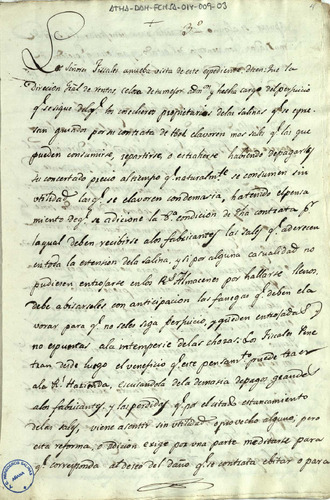 ATHA-DAH-FCHSA-014-009-03
3º
Los Señores Fiscales a nueva vista de este expediente dicen: Que la
Direccion Gral de rentas, celosa de su mejor, y hecha cargo del perjuicio
qe se sigue de qe los cosecheros proprietarios de las salinas qe se
quando por su contrata de elavoren mas sales qe las que
pueden consumirse, repartirse, o extraherse, haviendo de pagarse
su concertado precio al tiempo qe naturalmte se consumen sin
utilidad las qe se elavoren con demasia, ha tenido el pensa
miento de qe se adicione la condicion de dha contrata, pr
la qual deben recibirse a los fabricantes las sales qe aderecen
en toda la extension de la salina, y si por alguna casualidad no
pudieren entrojarse en los Rs Almacenes por hallarse llenos,
debe abisarseles con anticipacion las fanegas qe deben ela
vorar para qe no se les siga perjuicio, y queden entrojadas y
no expuestas a la intemperie de las chozas: Los Fiscales pene
tran desde luego el veneficio qe este pensamto puede traer
a la Rl Hazienda, escusandola de la demasia de pagos
a los fabricantes, y las perdidas qe por el citado estancamiento
de las sales, viene a sentir sin utilidad, o provecho alguno; pero
esta reforma, o adicion exige por una parte meditarse para
qe corresponda al deseo del daño qe la contrata ebitar o para